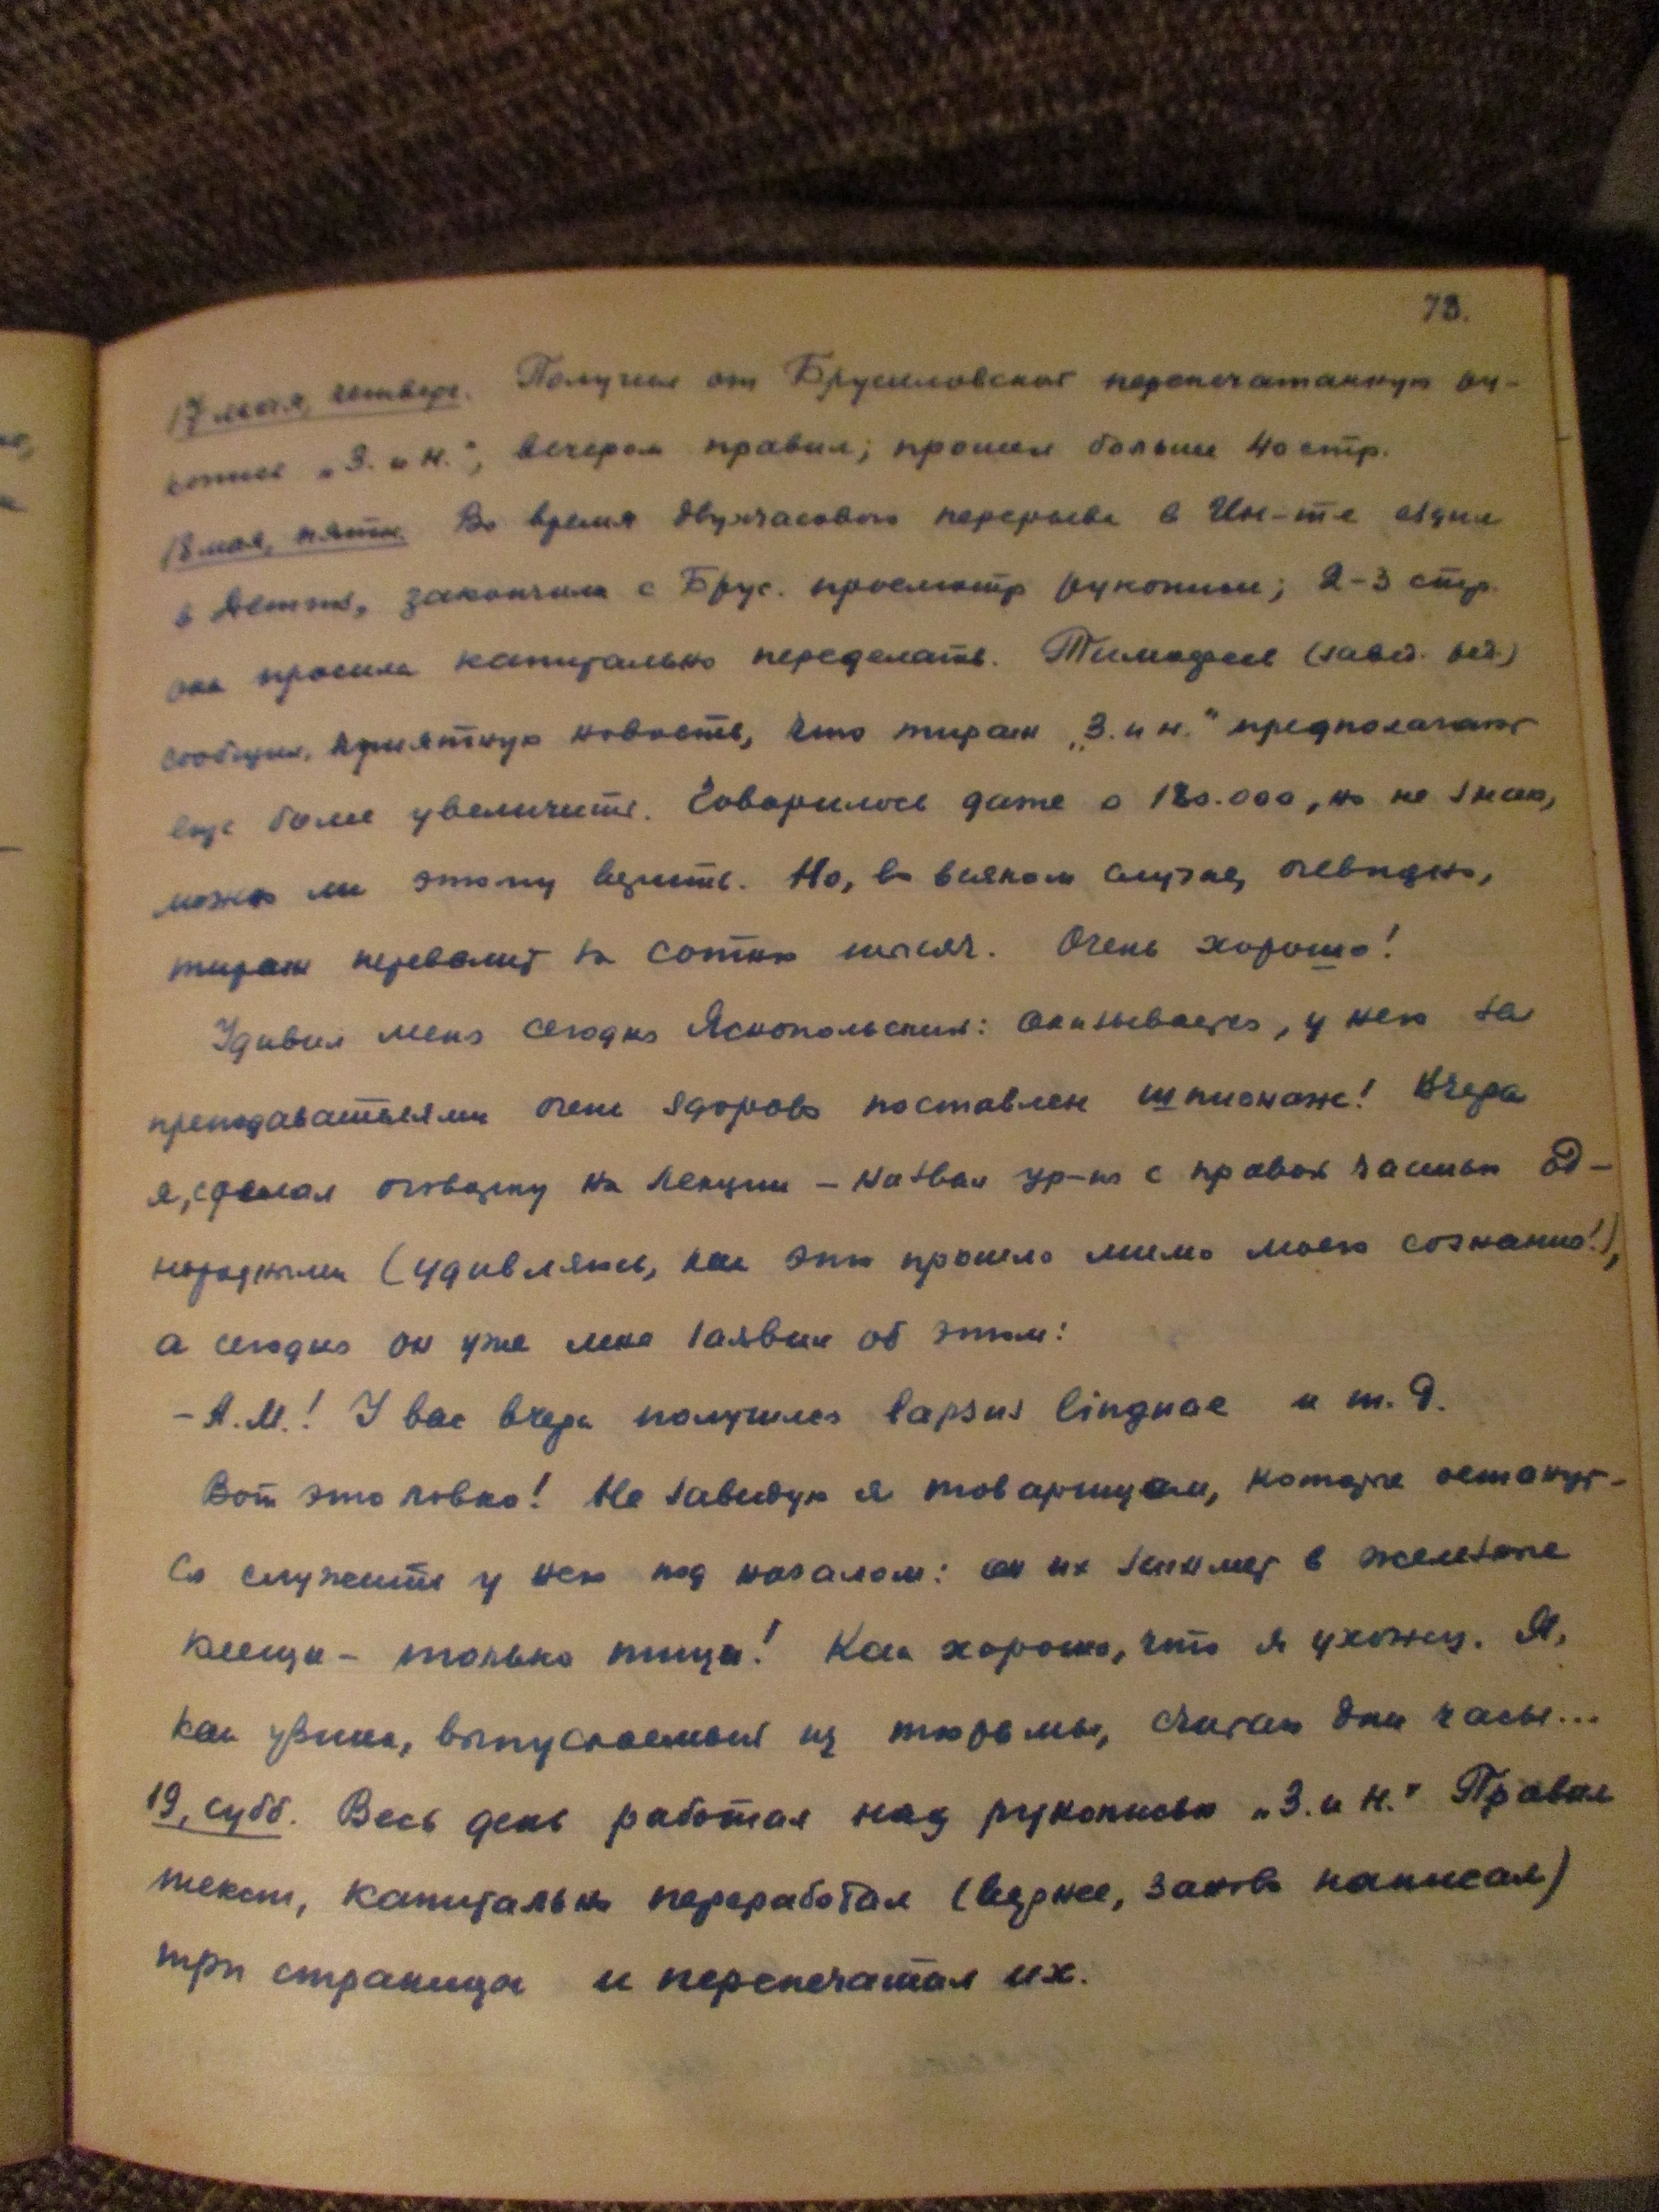 73.
17 мая, четверг. Получил от Брусиловской перепечатанную ру-
копись „З. и Н.", вечером правил; прошел больше 40 стр.
18 мая, пятн. Во время двухчасового перерыва в Ин-те ездил
в Детгиз, закончили с Брус. просмотр рукописи; 2-3 стр.
она просила капитально переделать. Тимофеев
сообщил приятную новость, что тираж „З. и Н." предполагают
еще более увеличить. Говорилось даже о 180.000, но не знаю,
можно ли этому верить. Но, во всяком случае, очевидно,
тираж перевалит за сотню тысяч. Очень хорошо!
Удивил меня сегодня Яснопольский: оказывается, у него за
преподавателями очень здорово поставлен шпионаж! Вчера
я, сделал оговорку на лекции – назвал ур-ия с правой частью од-
нородными (удивляюсь, как это прошло мимо моего сознания!),
а сегодня он уже мне заявил об этом:
– А.М.! У вас вчера получился lapsus linguae и т. д.
Вот это ловко! Не завидую я товарищам, которые останут-
ся служить у него под началом: он их зажмет в железные
клещи – только пищи! Как хорошо, что я ухожу. Я,
как узник, выпускаемый из тюрьмы, считаю дни часы...
19, субб. Весь день работал над рукописью „З. и Н." Правил
текст, капитально переработал (вернее, заново написал)
три страницы и перепечатал их.